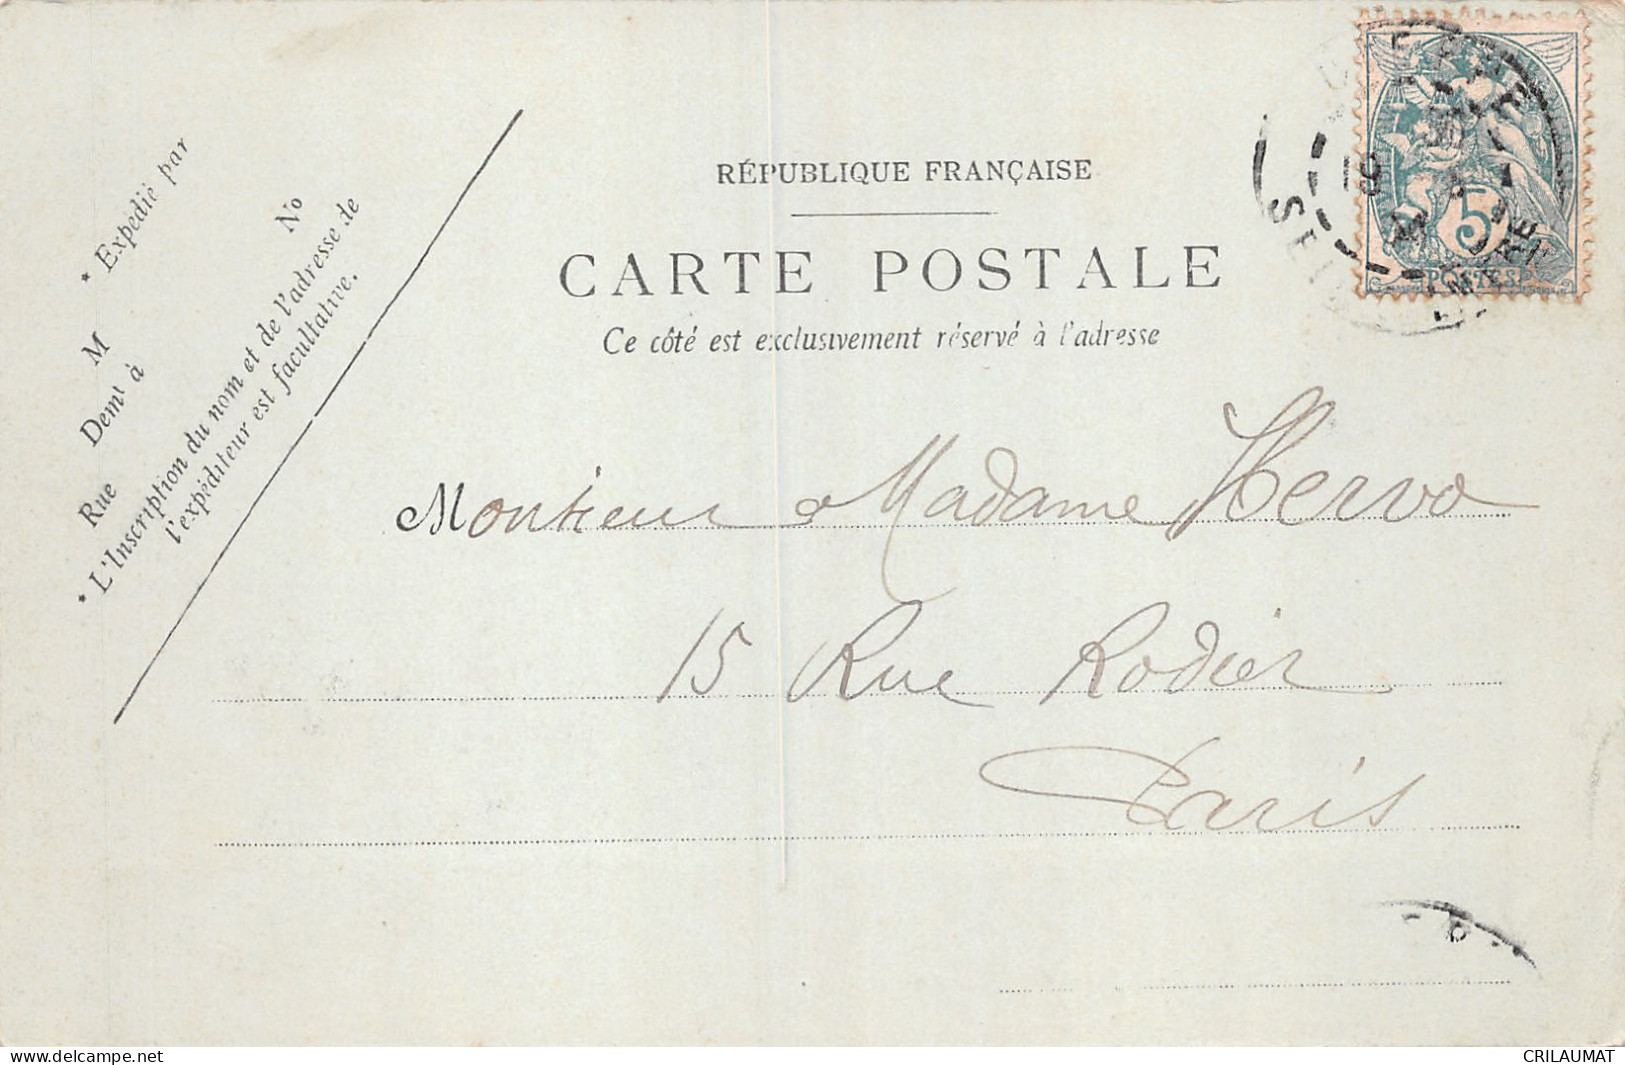 RÉPUBLIQUE FRANÇAISE
CARTE POSTALE
Ce côté est exclusivement réservé à l'adresse
* Expédié par
M
No
Demt à
Rue
* L'Inscription du nom et de l'adresse de
l'expéditeur est facultative.
5
POSTES
Monsieur & Madame Hervo
15 Rue Rodier
Paris
www.delcampe.net
CRILAUMAT